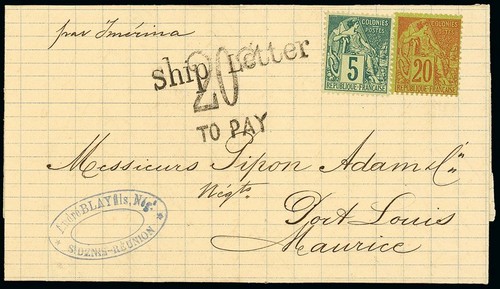 par Imérina
Ship Letter
20
TO PAY
COLONIES
POSTES
5
RÉPUBLIQUE FRANÇAISE
COLONIES
POSTES
20
RÉPUBLIQUE FRANÇAISE
Messieurs Pipon Adam & Cie
Négts
Port Louis
Maurice
André BLAY fils, Négt
ST DENIS-RÉUNION